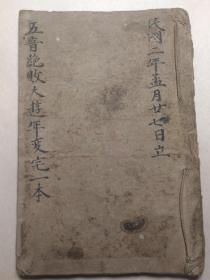 民國二年孟月廿七日立
五音總收大遊年变宅一本